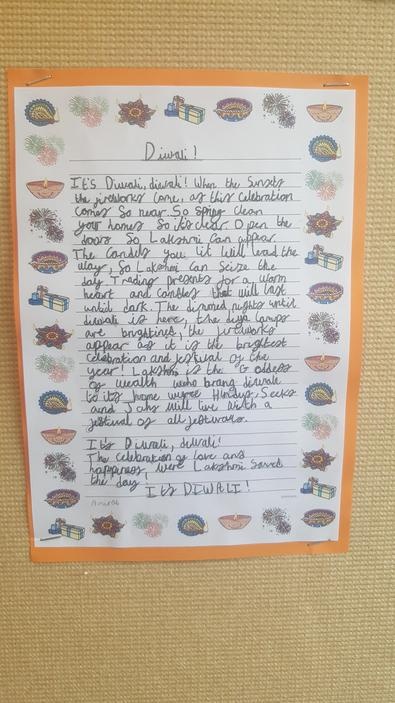 Diwali!
It's Diwali, diwali! When the Sunsets
the fireworks come, as this Celebration
comes So near. So Spring clean
your homes So its clear. Open the
doors So Lakshmi Can appear.
The Candles you lit Will lead the
Way, So Lakshmi Can Seize the
day. Trading presents for a warm
heart and Candles that will last
until dark. The dimmed nights until
diwali is here, the diya lamps
are brightined, the fireworks
appear as it is the brightest
Celebration and festival of the
year! Lakshmi is the Goddess
of wealth who brang diwale
to its home were Hindus, Seeks
and Jains will live with a
festival of all festivals.
It's Diwali, diwali!
The celebration of love and
happiness, were Lakshmi Saved
the day
It's DIWALI!